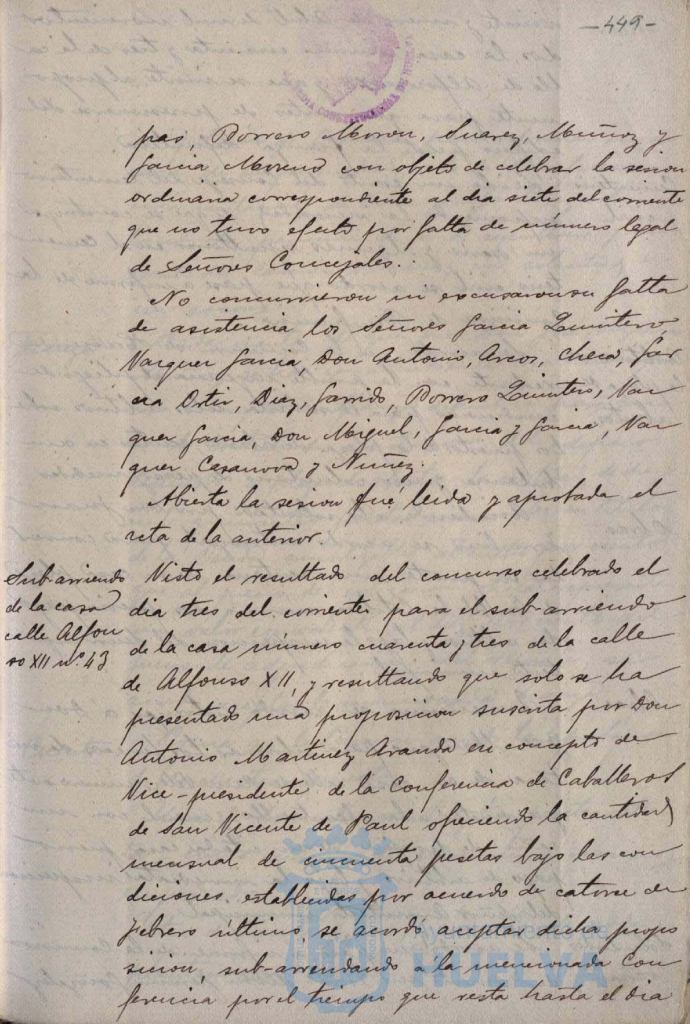 -449-
pas, Borrero Moron, Suarez, Muñoz y
Garcia Moreno con objeto de celebrar la sesion
ordinaria correspondiente al dia siete del corriente
que no tuvo efecto por falta de número legal
de Señores Concejales.
No concurrieron ni excusaron su falta
de asistencia los Señores Garcia Quintero,
Vazquez Garcia, Don Antonio, Arcos, Checa, Gar
cia Ortiz, Diaz, Garrido, Borrero Quintero, Vaz
quez Garcia, Don Miguel, Garcia y Garcia, Vaz
quez Casanova y Nuñez.
Abierta la sesion fué leida y aprobada el
acta de la anterior.
Sub-arriendo
de la casa
calle Alfon
so XII nº 43
Visto el resultado del concurso celebrado el
dia tres del corriente para el sub-arriendo
de la casa número cuarenta y tres de la calle
de Alfonso XII, y resultando que solo se ha
presentado una proposicion suscrita por Don
Antonio Martinez Aranda en concepto de
Vice-presidente de la Conferencia de Caballeros
de San Vicente de Paul ofreciendo la cantidad
mensual de cincuenta pesetas bajo las con
diciones establecidas por acuerdo de catorce de
Febrero último, se acordó aceptar dicha propo
sicion, sub-arrendando a la mencionada Con
ferencia por el tiempo que resta hasta el dia
HUELVA